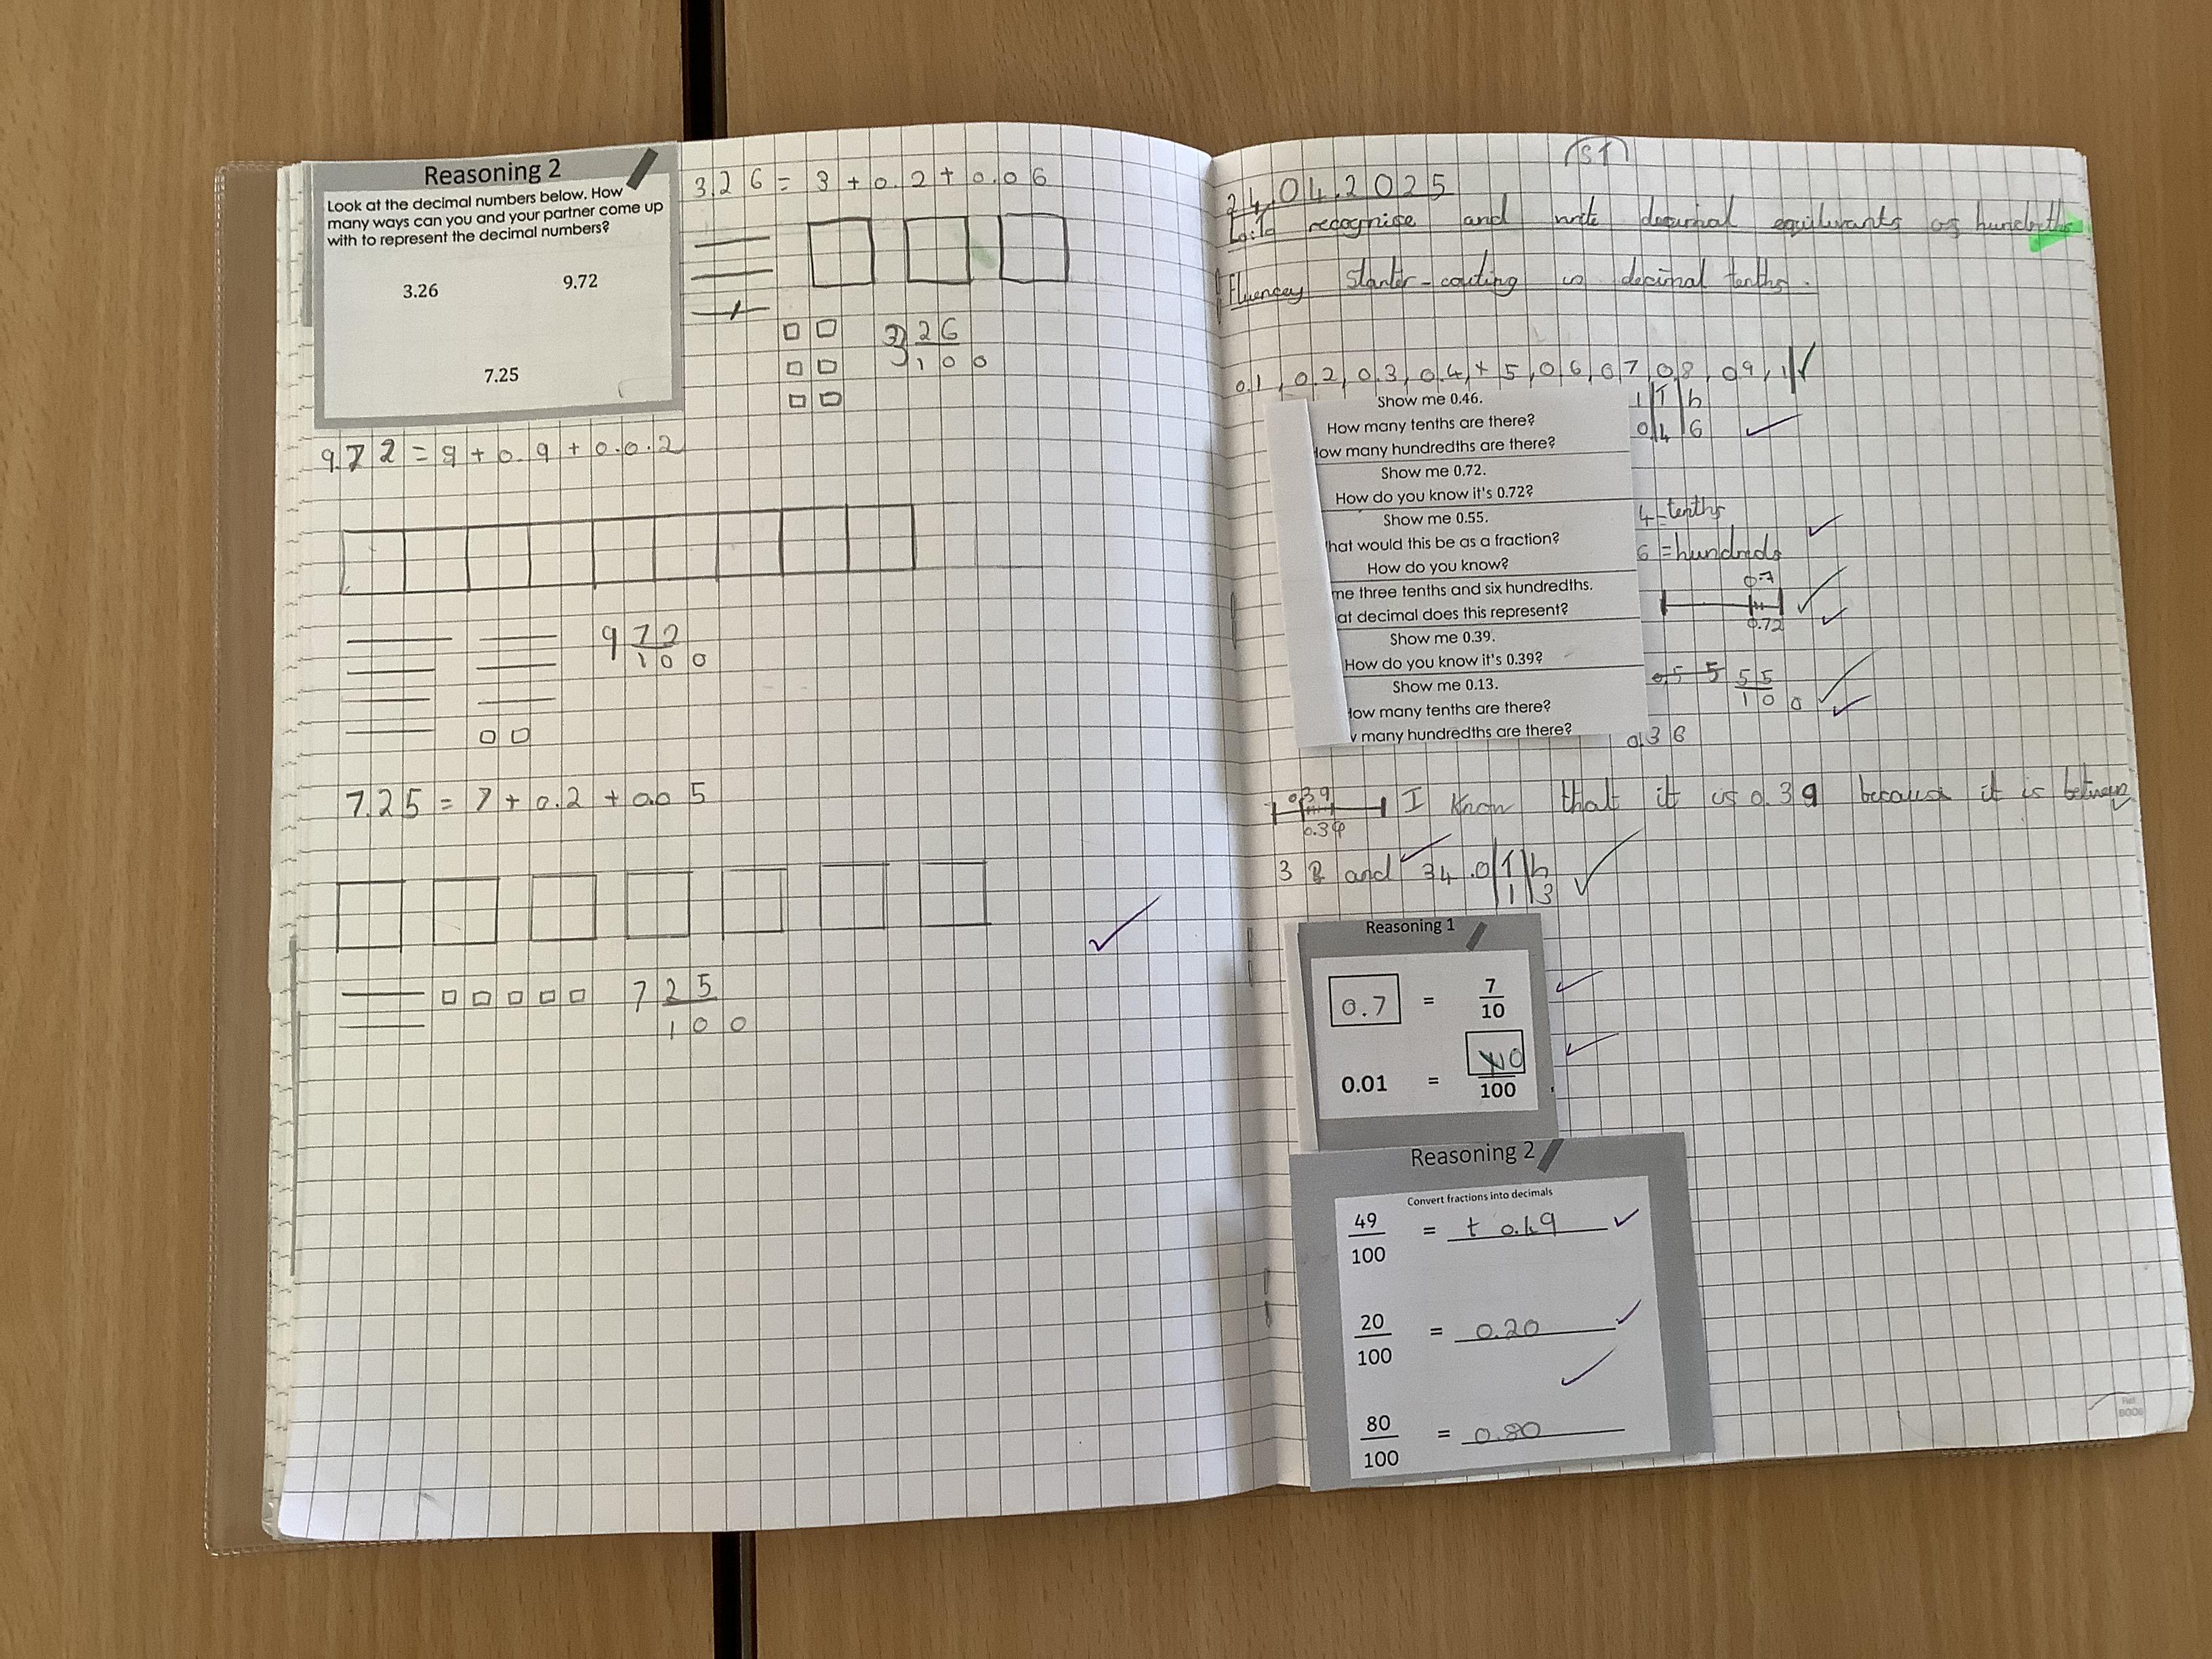 Reasoning 2
Look at the decimal numbers below. How
many ways can you and your partner come up
with to represent the decimal numbers?
3.26
9.72
7.25
3.26 = 3 + 0.2 + 0.06
3 26
100
9.72 = 9 + 0.9 + 0.0.2
9 72
100
7.25 = 7 + 0.2 + 0.05
7 25
100
ST
24.04.2025
recognise and write decimal equilivants of hundredths
Fluencey Starter - couting in decimal tenths.
0.1, 0.2, 0.3, 0.4, 5, 0.6, 0.7, 0.8, 0.9, 1
Show me 0.46.
How many tenths are there?
How many hundredths are there?
Show me 0.72.
How do you know it's 0.72?
Show me 0.55.
hat would this be as a fraction?
How do you know?
me three tenths and six hundredths.
at decimal does this represent?
Show me 0.39.
How do you know it's 0.39?
Show me 0.13.
How many tenths are there?
many hundredths are there?
1 T h
0 4 6
4 - tenths
6 = hundreds
0.7
0.72
0.5 5 55
100
0.36
0.39
0.39
I know that it is 0.39 because it is between
3 and 34 .0 T h
1 3
Reasoning 1
0.7 = 7
10
0.01 =
100
Reasoning 2
Convert fractions into decimals
49
100
= 0.49
20
100
= 0.20
80
100
= 0.80